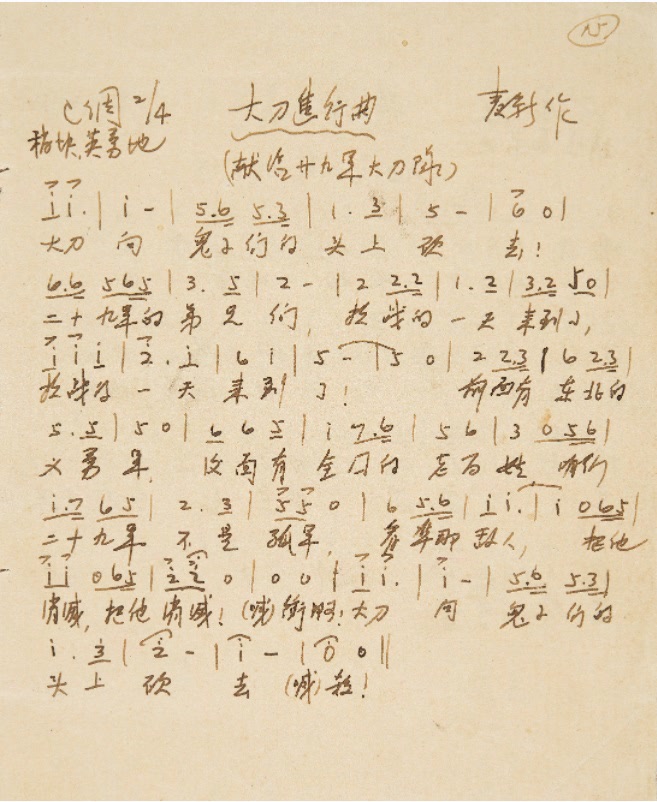 15
C调 2/4 大刀進行曲 麦新作
稍快,英勇地
(献给廿九军大刀隊)
i i. | i - | 5.6 5.3 | 1. 3 | 5 - | 6 0 |
大刀 向 鬼子们的 头上 砍 去!
6.6 565 | 3. 5 | 2 - | 2 2.2 | 1. 2 | 3.2 50 |
二十九军的 弟兄 们, 抗战的 一天 来到了,
i i i | 2. i | 6 i | 5 - | 5 0 | 2 2.3 | 6 2.3 |
抗战的 一天 来到 了! 前面有 东北的
5. 5 | 5 0 | 6 6 5 | i 7.6 | 5 6 | 3 0 56 |
义勇 军, 后面有 全国的 老百姓 咱们
i.7 65 | 2. 3 | 5 5 0 | 6 5.6 | i i. | i 065 |
二十九军 不是 孤军, 看準那 敌人, 把他
i i 065 | 2 2 0 | 0 0 | i i. | i - | 5.6 5.3 |
消滅, 把他 消滅! (喊)衝啊! 大刀 向 鬼子 们的
i. 3 | 2 - | i - | i 0 ||
头上 砍 去 (喊)殺!